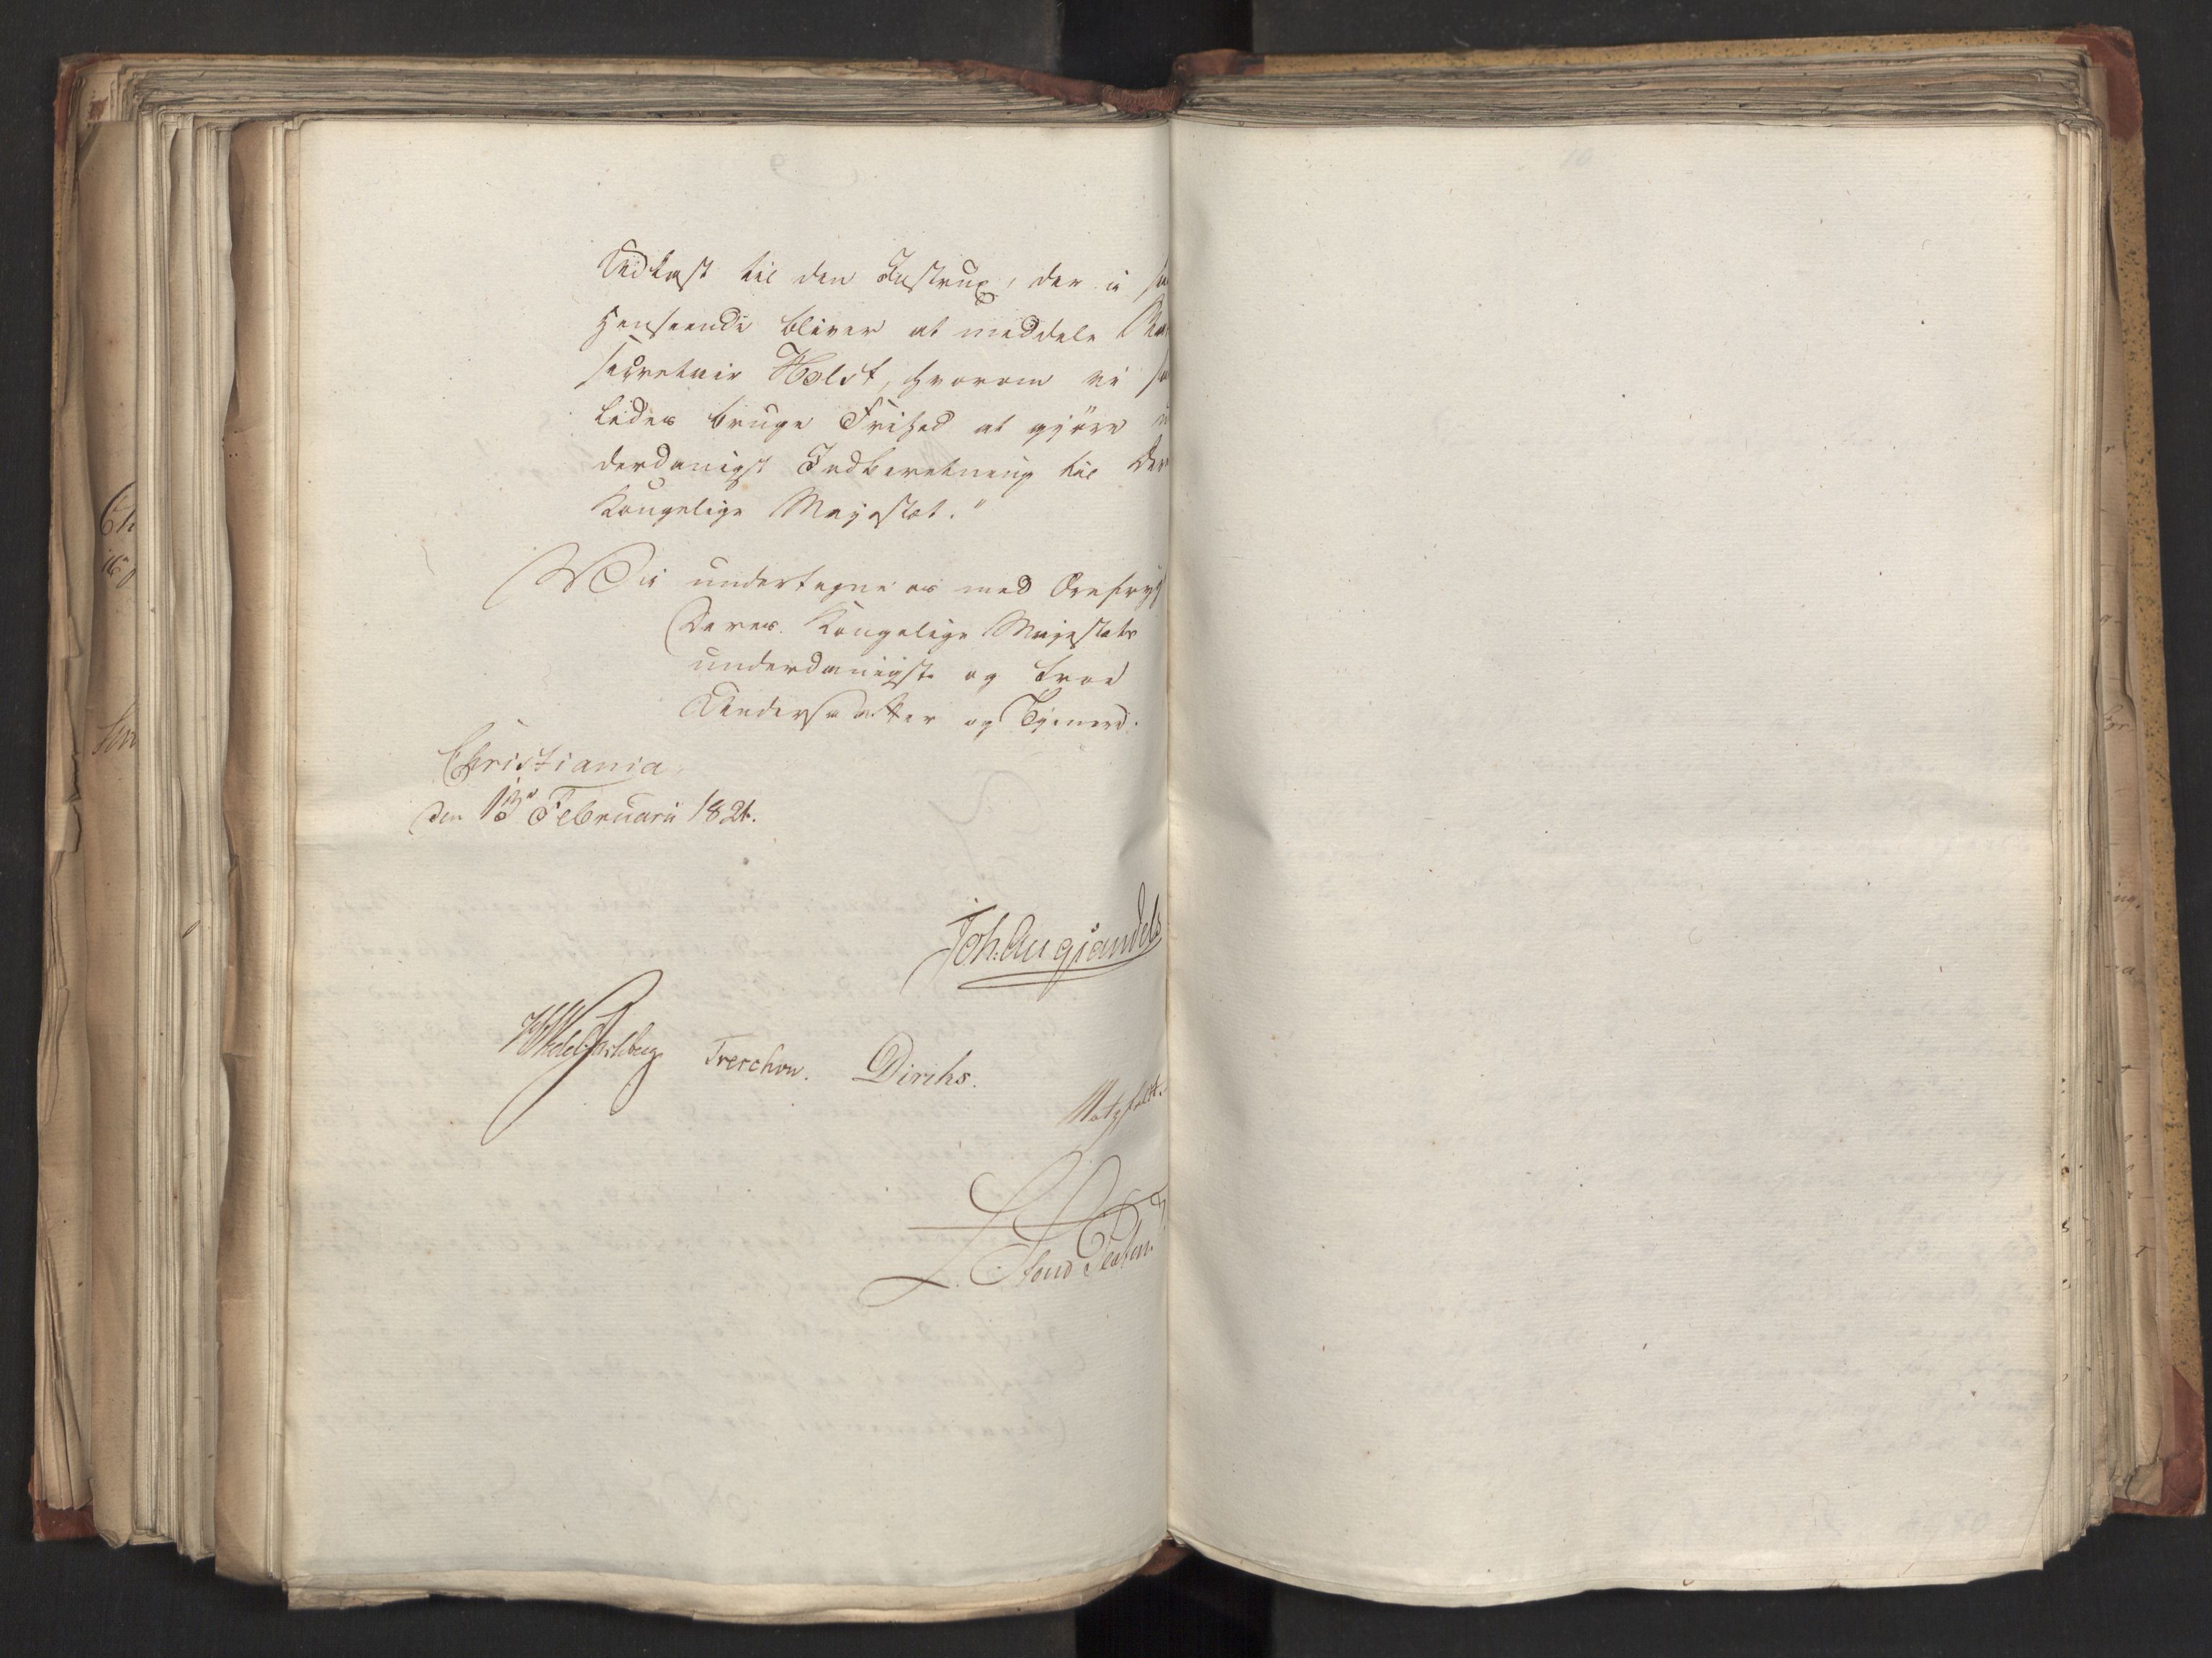 Udkast til den Instrux, der i saa
Henseende bliver at meddele
Secretair Holst, hvorom vi saa-
ledes bruge Frihed at gjøre un-
derdanigst Indberetning til Deres
Kongelige Majestæt."
Vi undertegne os med Ærefrygt
Deres Kongelige Majestæts
underdanigst og troe
Undersaatter og Tjenere.
Christiania,
den 13de Februarii 1821.
Joh. Aug Sandels
Wedel Jarlsberg Treschow. Diriks.
Motzfeldt.
L. Stoud Platou